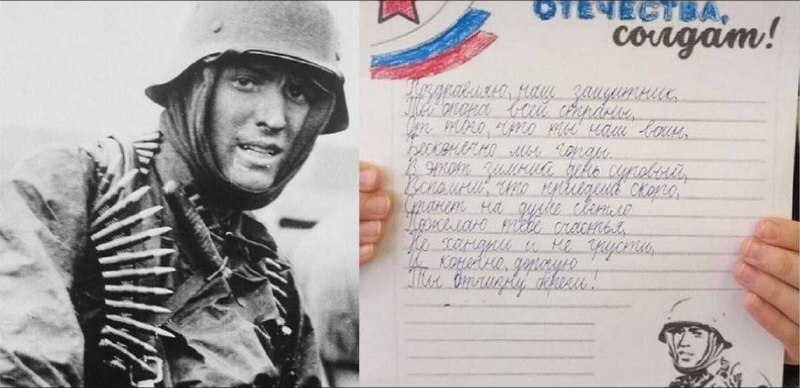 ОТЕЧЕСТВА,
солдат!
Поздравляю, наш защитник,
Ты опора всей страны,
От того, что ты наш воин,
Бесконечно мы горды.
В этот зимний день суровый,
Вспомни, что придёшь скоро,
Станет на душе светло.
Пожелаю тебе счастья,
Не хандри и не грусти,
И конечно, дорогую
Ты отчизну береги!